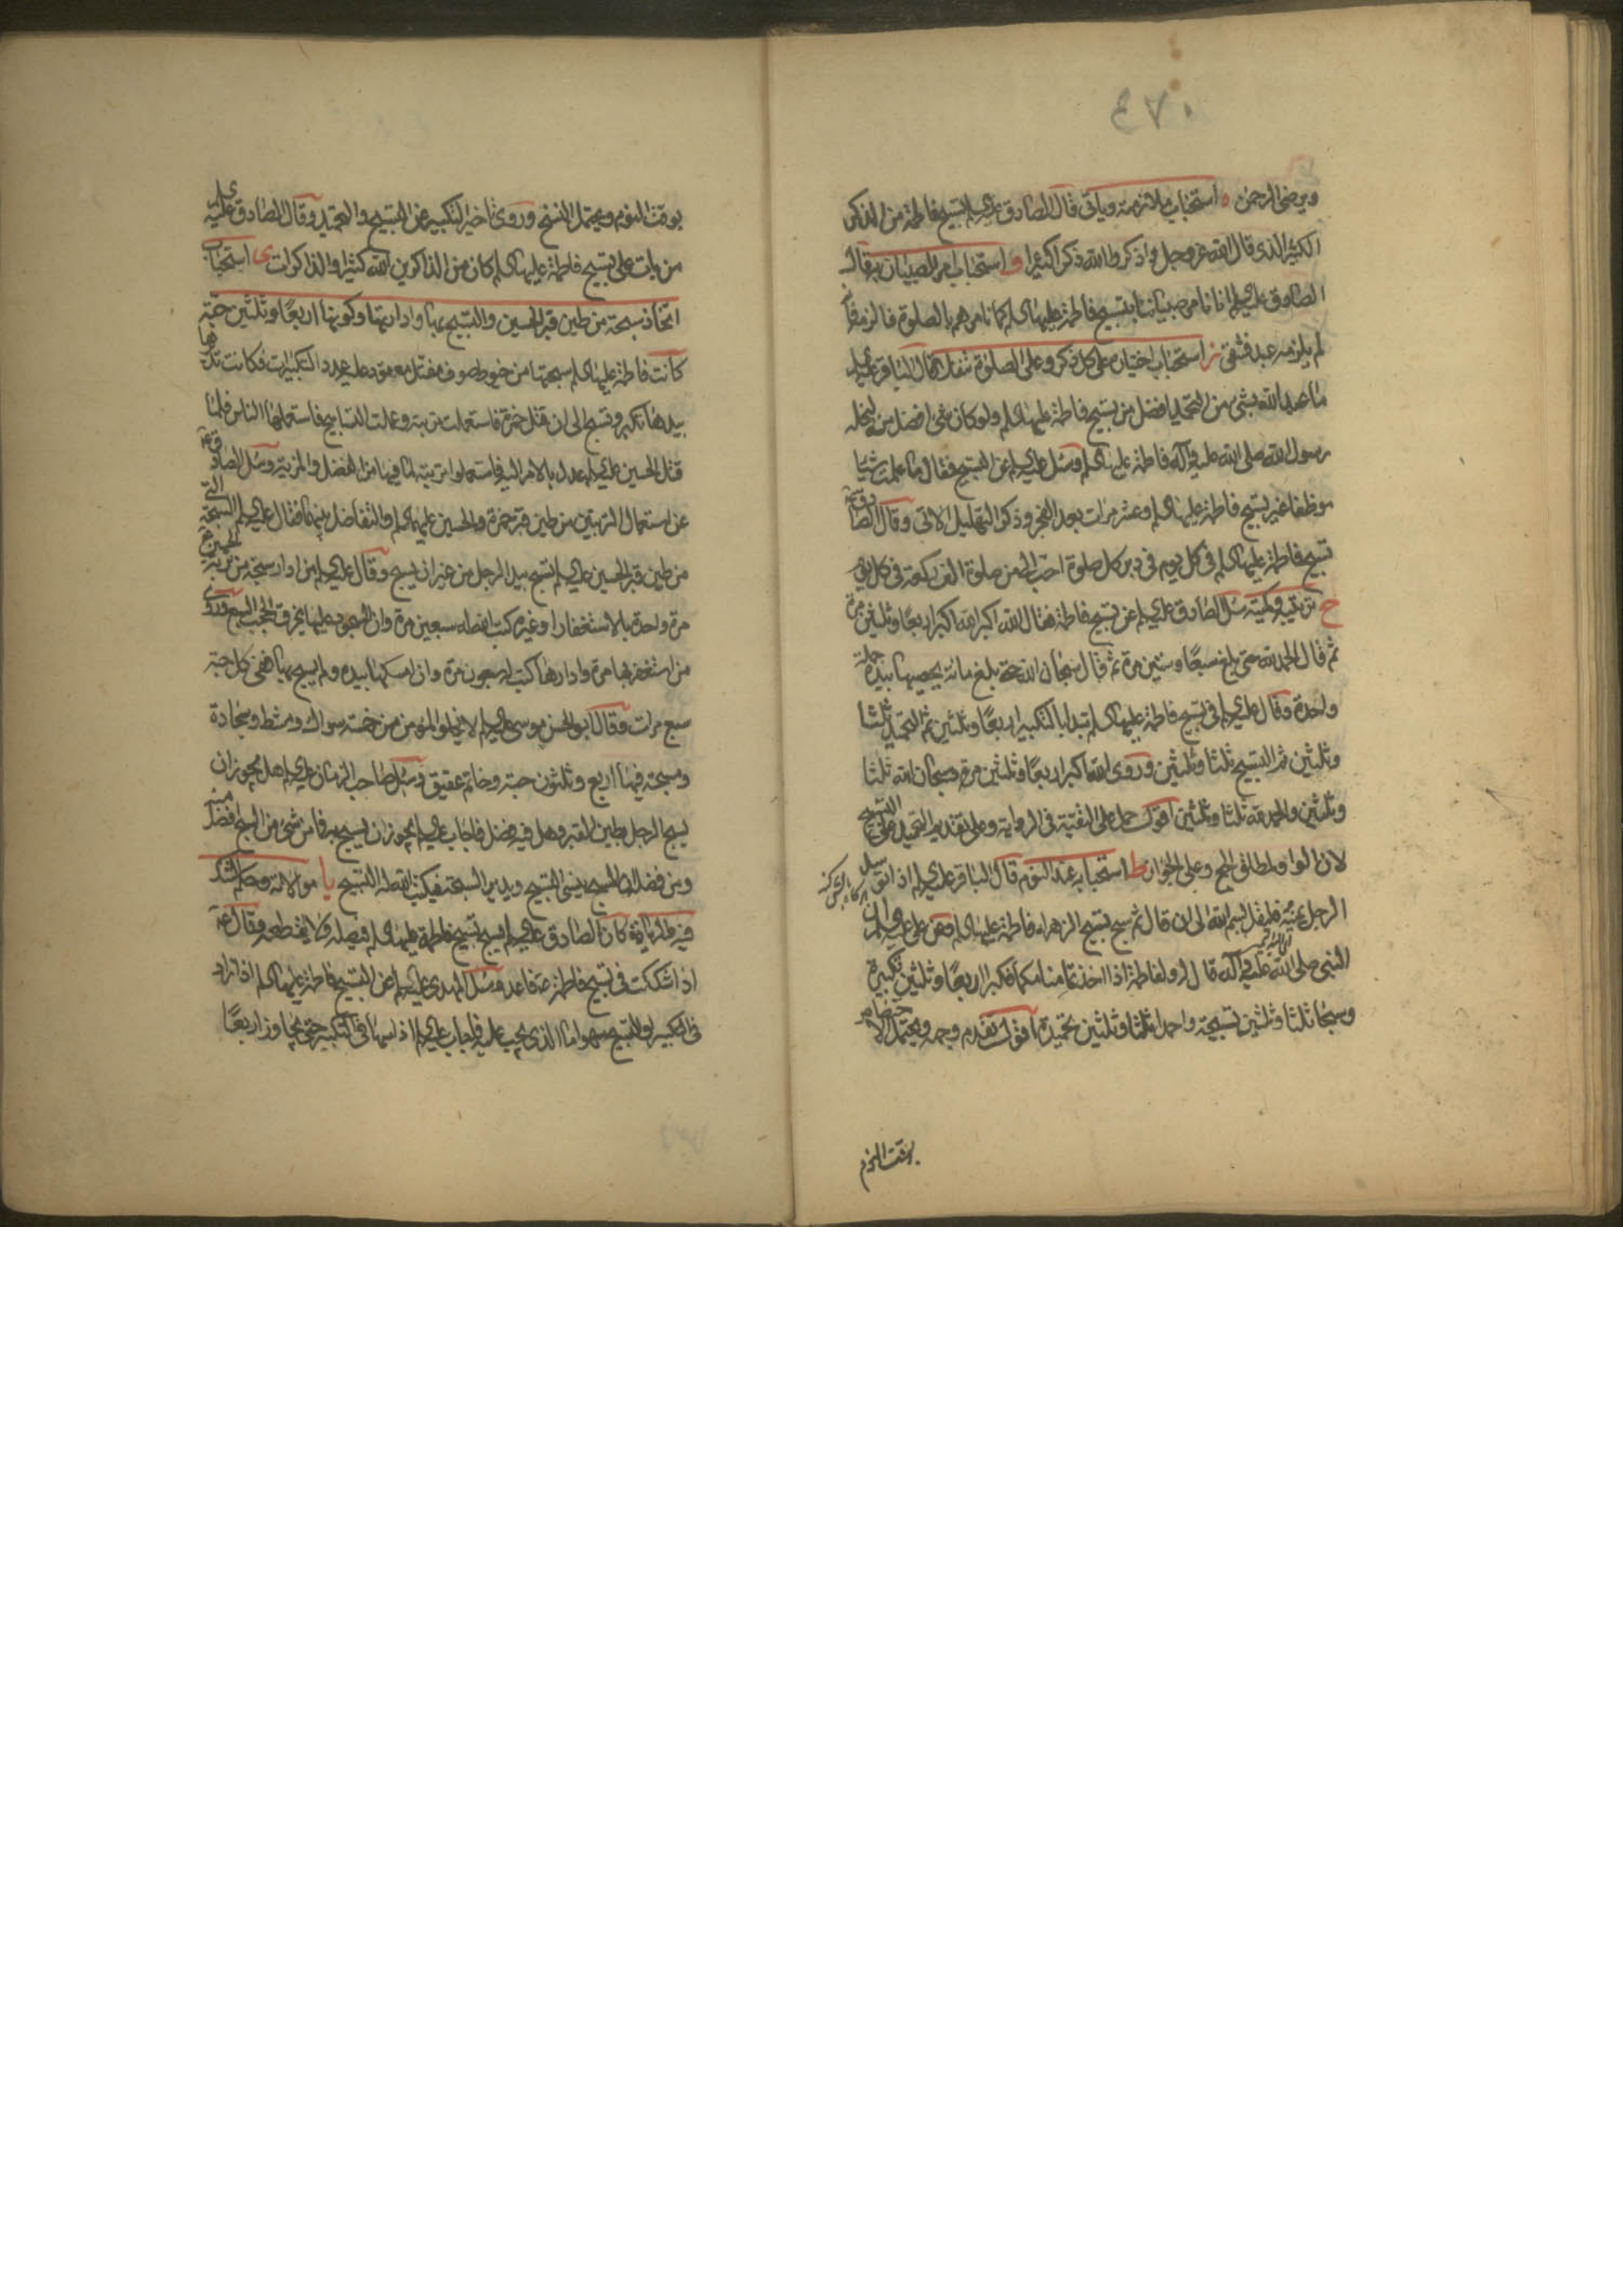 ويرضى الرحمن ه استحباب ملازمته وياتى قال الصادق عليه السلم تسبيح فاطمة من الذكر
الكثير الذى قال الله عز وجل واذكروا الله ذكرا كثيرا و استحباب امر الصبيان به قال
الصادق عليه السلم انا نامر صبياننا بتسبيح فاطمة عليها السلم كما نامرهم بالصلوة فالزمه فانه
لم يلزمه عبد فشقى ز استحباب اختياره على كل ذكر وعلى الصلوة تنفلا قال الباقر عليه السلم
ما عبد الله بشىء من التحميد افضل من تسبيح فاطمة عليها السلم ولو كان شىء افضل منه لنحله
رسول الله صلى الله عليه وآله فاطمة عليها السلم وسئل عليه السلم عن التسبيح فقال ما علمت شيئا
موظفا غير تسبيح فاطمة عليها السلم وعشر مرات بعد الفجر وذكر التهليل الآتى وقال الصادق ع
تسبيح فاطمة عليها السلم فى كل يوم فى دبر كل صلوة احب الى من صلوة الف ركعة فى كل يوم
ح ترتيبه وكميته سئل الصادق عليه السلم عن تسبيح فاطمة فقال الله اكبر الله اكبر اربعا وثلثين مرة
ثم قال الحمد لله حتى بلغ سبعا وستين مرة ثم قال سبحان الله حتى بلغ مائة يحصيها بيده جملة
واحدة وقال عليه السلم فى تسبيح فاطمة عليها السلم تبدا بالتكبير اربعا وثلثين ثم التحميد ثلثا
وثلثين ثم التسبيح ثلثا وثلثين وروى الله اكبر اربعا وثلثين مرة وسبحان الله ثلثا
وثلثين والحمد لله ثلثا وثلثين اقول حمل على التقية فى الرواية وعلى تقديم التحميد على التسبيح
لان الواو لمطلق الجمع وعلى الجواز ط استحبابه عند النوم قال الباقر عليه السلم اذا توسد
الرجل يمينه فليقل بسم الله الى ان قال ثم يسبح تسبيح الزهراء فاطمة عليها السلم وعن على عليه السلم ان
النبى صلى الله عليه وآله قال له ولفاطمة اذا اخذتما منامكما فكبرا اربعا وثلثين تكبيرة
وسبحا ثلثا وثلثين تسبيحة واحمدا ثلثا وثلثين تحميدة اقول تقدم وجهه ويحتمل الاختصاص
بوقت النوم
بوقت النوم ويحتمل النسخ وروى تاخير التكبير عن التسبيح والتحميد وقال الصادق عليه السلم
من بات على تسبيح فاطمة عليها السلم كان من الذاكرين الله كثيرا والذاكرات ى استحباب
اتخاذ سبحة من طين قبر الحسين والتسبيح بها وادارتها وكونها اربعا وثلثين حبة
كانت فاطمة عليها السلم سبحتها من خيوط صوف مفتل معقود عليه عدد التكبيرات فكانت تديرها
بيدها تكبر وتسبح الى ان قتل حمزة فاستعملت تربته وعملت التسابيح فاستعملها الناس فلما
قتل الحسين عليه السلم عدل بالامر اليه فاستعملوا تربته لما فيها من الفضل والمزية وسئل الصادق ع
عن استعمال التربتين من طين قبر حمزة والحسين عليهما السلم والتفاضل بينهما فقال عليه السلم السبحة التى
من طين قبر الحسين عليه السلم تسبح بيد الرجل من غير ان يسبح وقال عليه السلم من ادار سبحة من تربة الحسين ع
مرة واحدة بالاستغفار او غيره كتب الله له سبعين مرة وان السجود عليها يخرق الحجب السبع وروى
من استغفر بها مرة وادارها كتب له سبعون مرة وان امسكها بيده ولم يسبح بها ففى كل حبة
سبع مرات وقال ابو الحسن موسى عليه السلم لا يخلو المؤمن من خمسة سواك ومشط وسجادة
ومسبحة فيها اربع وثلثون حبة وخاتم عقيق وسئل صاحب الزمان عليه السلم هل يجوز ان
يسبح الرجل بطين القبر وهل فيه فضل فاجاب عليه السلم يجوز ان يسبح به فما من شىء من السبح افضل منه
ومن فضله ان المسبح ينسى التسبيح ويدير السبحة فيكتب الله له التسبيح يا موالاته وحكم الشك
فيه والزيادة كان الصادق عليه السلم يسبح تسبيح فاطمة عليها السلم فيصله ولا يقطعه وقال ع
اذا شككت فى تسبيح فاطمة ع فاعد وسئل المهدى عليه السلم عن التسبيح فاطمة عليها السلم اذا زاد
فى التكبير او التسبيح سهوا ما الذى يجب عليه فاجاب عليه السلم اذا سها فى التكبير حتى يجاوز اربعا